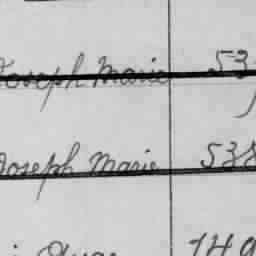 Joseph Marie 53
Joseph Marie 538
149